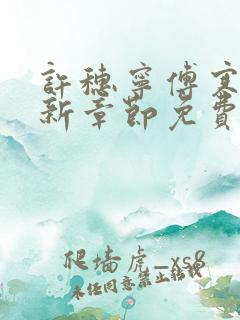 許穗寧傅寒
新章節免費
爬墻虎_xs8
未经同意禁止转载